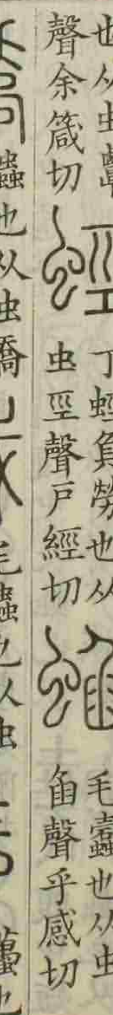 也从虫覃
聲余箴切
丁蛵負勞也从
虫巠聲戶經切
毛蠹也从虫
臽聲乎感切
蟲也从虫喬
毛蟲也从虫